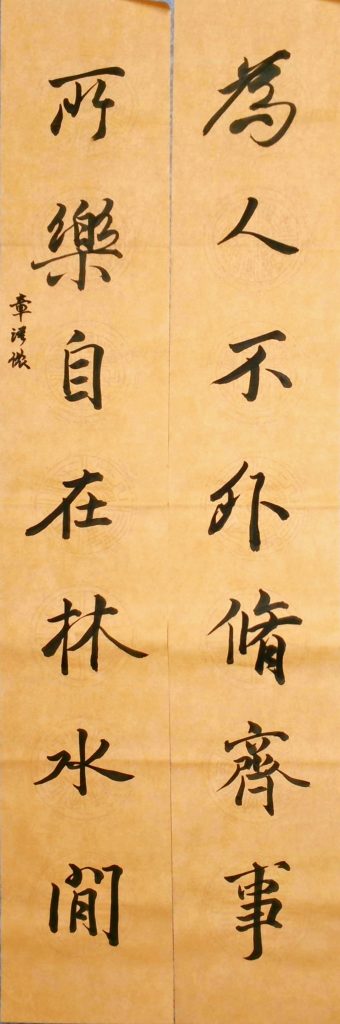 為人不外脩齊事
所樂自在林水間
章